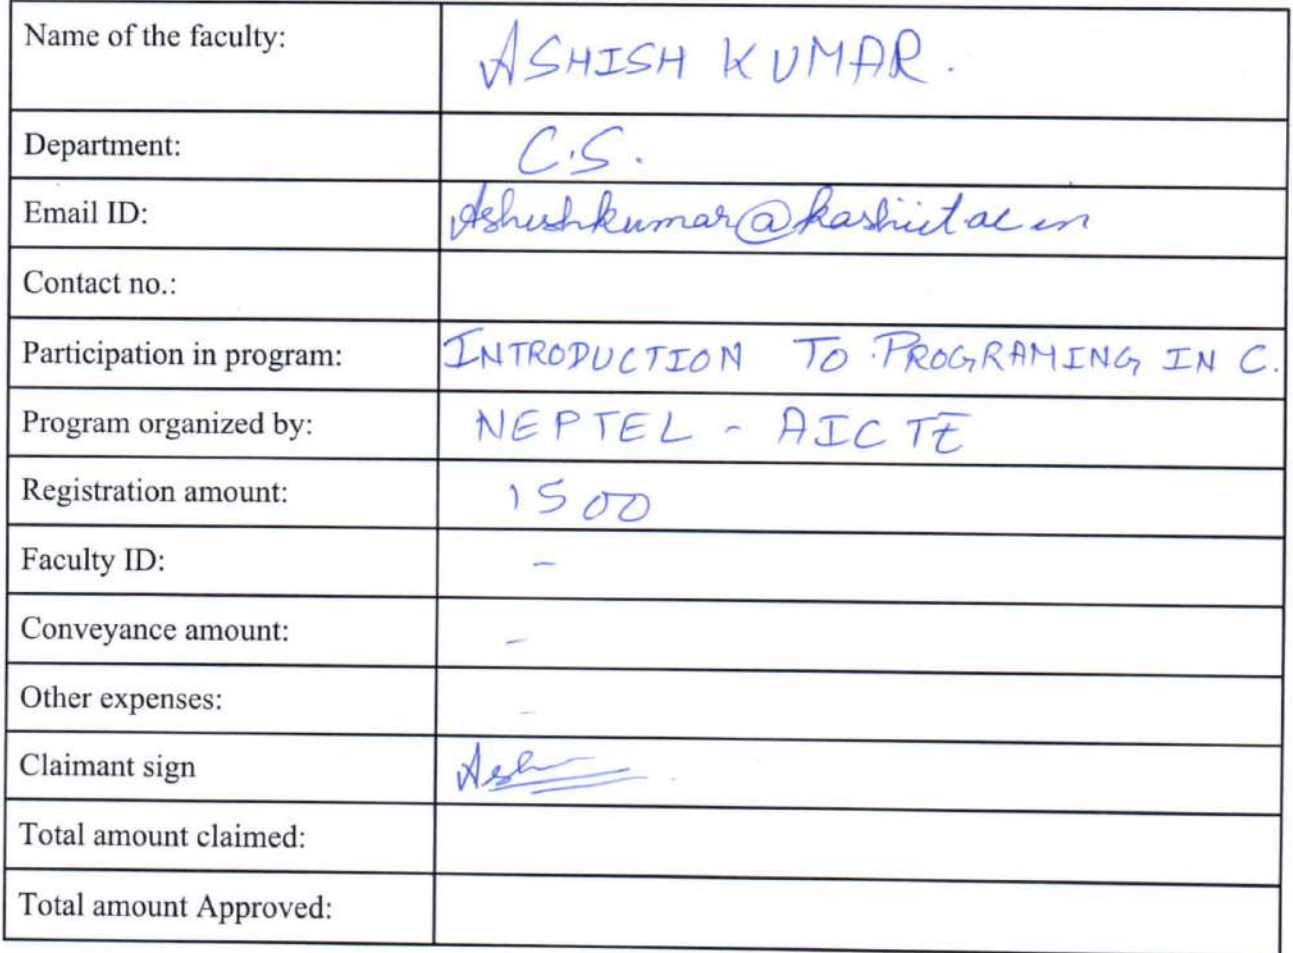 Name of the faculty: ASHISH KUMAR.
Department: C.S.
Email ID: Ashishkumar@kashiit.ac.in
Contact no.:
Participation in program: INTRODUCTION TO PROGRAMING IN C.
Program organized by: NEPTEL - AICTE
Registration amount: 1500
Faculty ID: -
Conveyance amount: -
Other expenses: -
Claimant sign Ash
Total amount claimed:
Total amount Approved: